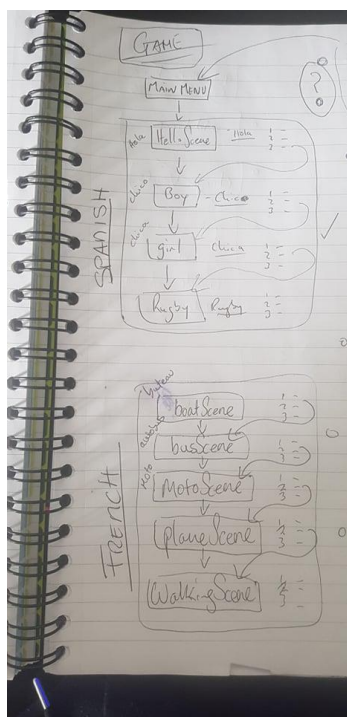 GAME
MAIN MENU
?
SPANISH
Hola
Hello Scene - Hola 1 - 2 - 3 -
chico
Boy - Chico 1 - 2 - 3 -
chica
girl Chica 1 - 2 - 3 -
Rugby Rugby 1 - 2 - 3 -
FRENCH
bateau
boatScene 1 - 2 - 3 -
autobus
busScene 1 - 2 - 3 -
Moto
MotoScene 1 - 2 - 3 -
planeScene 1 - 2 - 3 -
WalkingScene 1 - 2 - 3 -